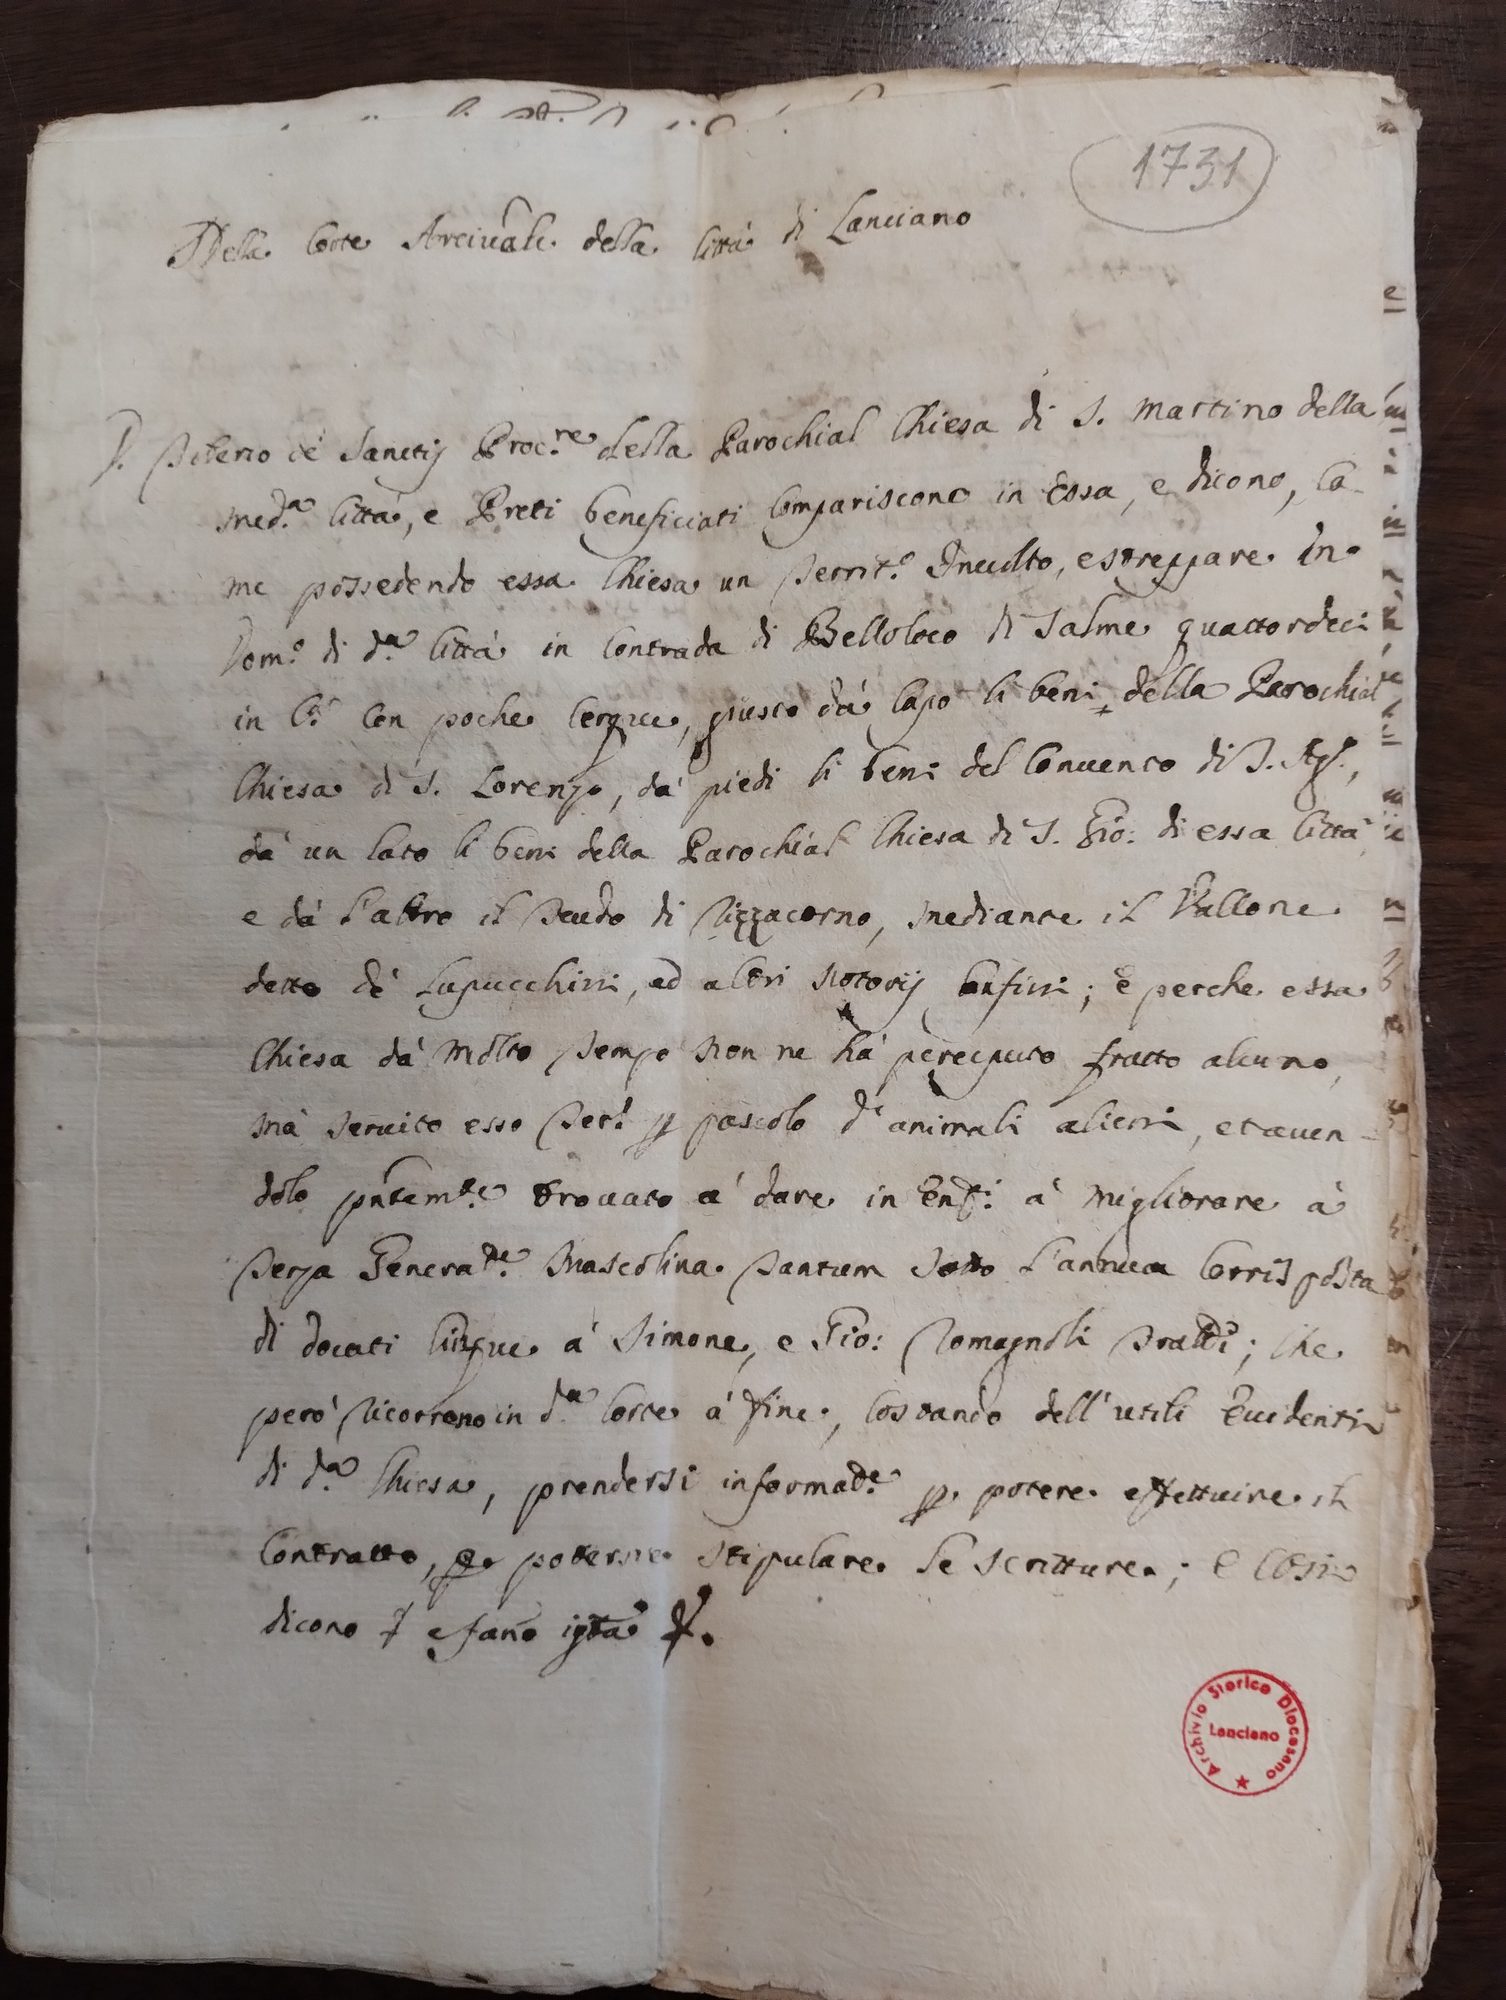 1731
Della Corte Arciuale della Città di Lanciano
D. Liberio de Sanctij Proc.re della Parochial Chiesa di S. Martino della
med.a Città, e Preti beneficiati Compariscono in Essa, e dicono, Co-
me possedendo essa Chiesa un Territ.o Inculto, e streppare in
Dom.o di d.a Città in Contrada di Belloloco di Salme quattordeci
in C.a Con poche Cerque, giusto dà Capo li beni della Parochial
Chiesa di S. Lorenzo, dà piedi li beni del Conuento di S. Ag.o,
dà un lato li beni della Parochial Chiesa di S. Gio: di essa Città
e dà l'altro il Feudo di Rizzacorno, mediante il Vallone
detto de Lupucchini, ed altri notorij Confini; E perche essa
Chiesa dà molto tempo non ne hà perciputo frutto alcuno,
mà seruito esso Ter.o p pascolo d'animali alieni, et auen-
dolo pntem.te trouato à dare in Enf.i à migliorare à
terza Genera.ne Mascolina tantum sotto l'annua Corrisposta
di docati Cinque à Simone, e Gio: Romagnoli fratelli; Che
però ricorrono in d.a Corte à fine, Costando dell'utili Euidenti
di d.a Chiesa, prendersi informa.ne p potere effettuire il
Contratto, e poterne stipulare le scritture; E Cosi
dicono e fano ista
Archivio Storico Diocesano
Lanciano